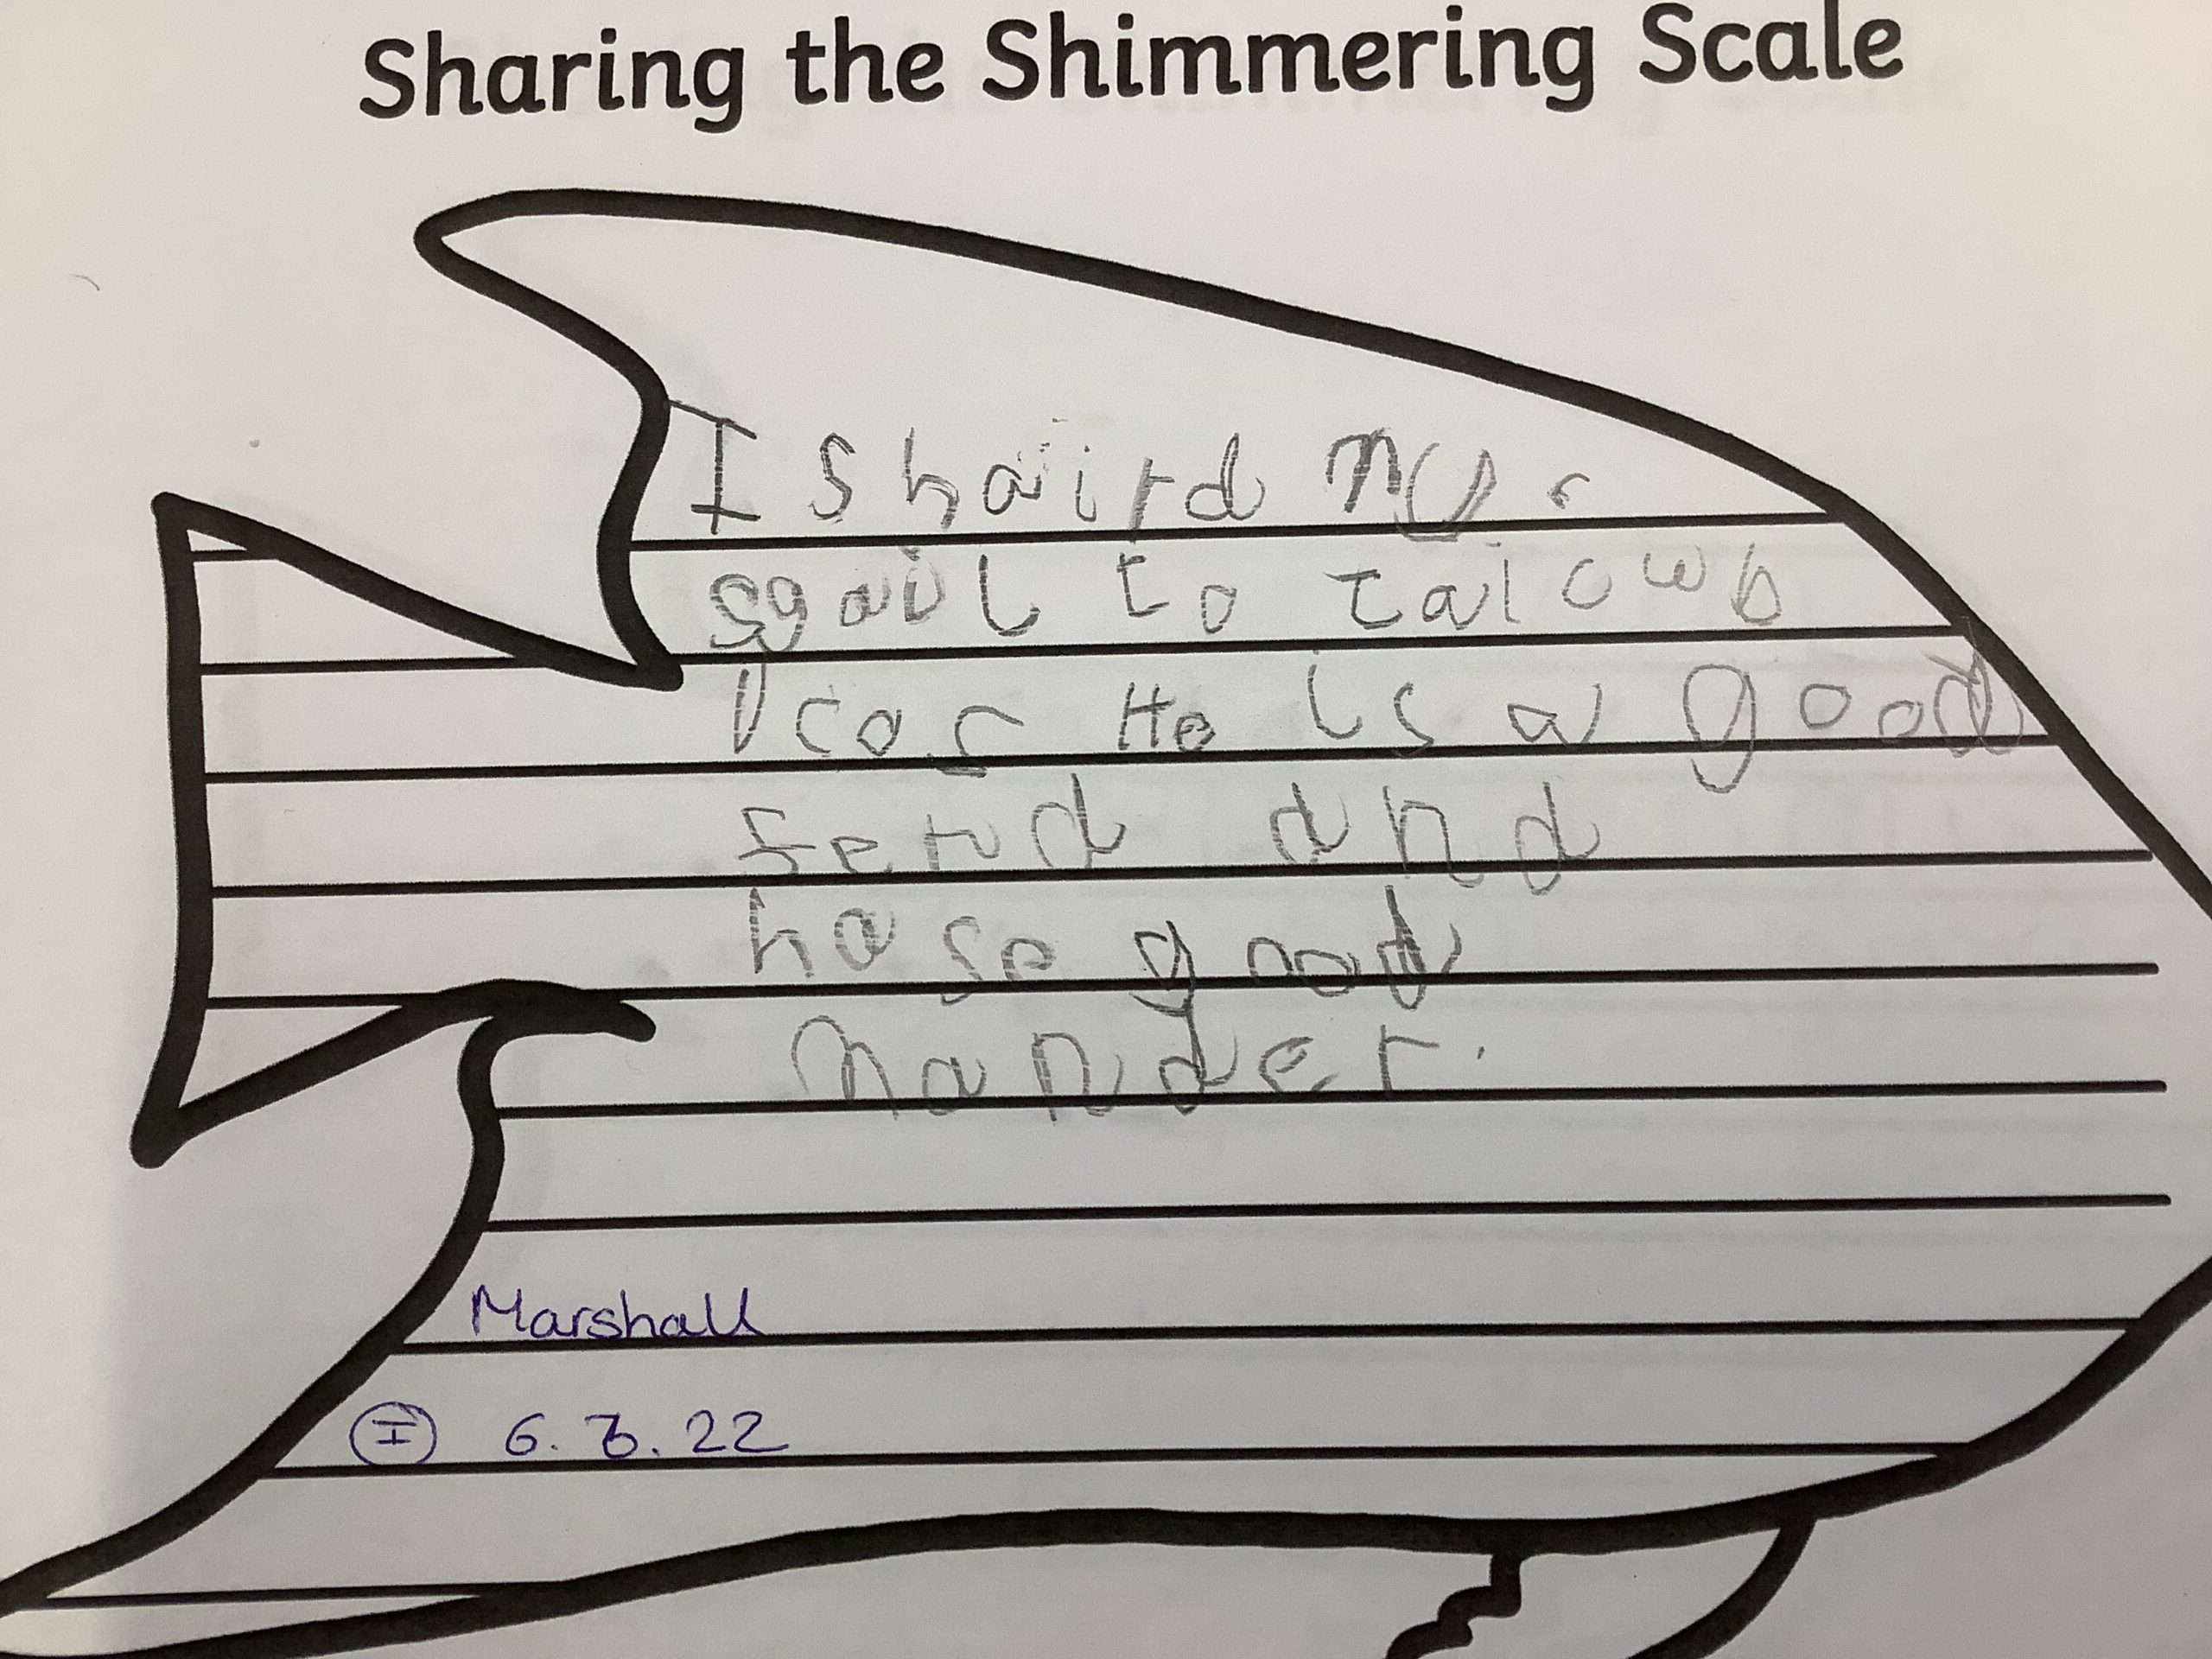 Sharing the Shimmering Scale
I shaird my
sgail to taicwb
cos He is a good
fernd and
hase good
mander.
Marshall
I 6.6.22